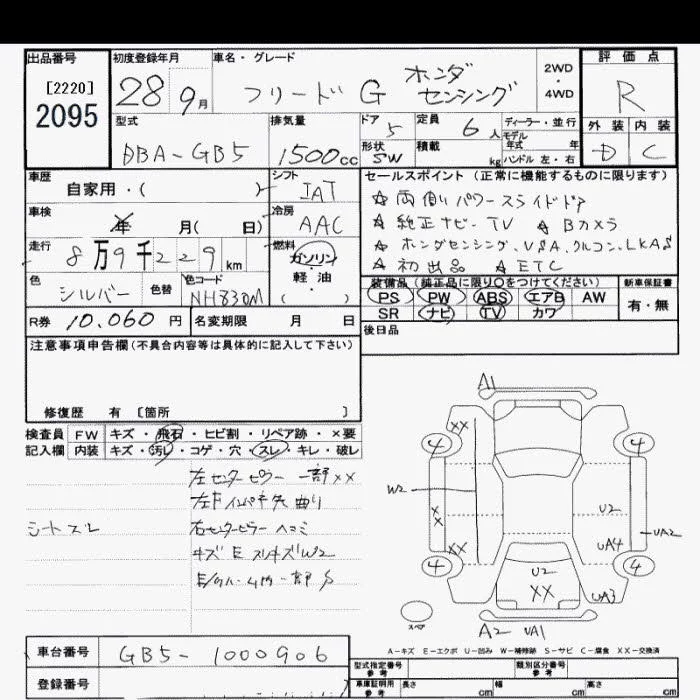 出品番号
[2220]
2095
初度登録年月
28 9月
車名・グレード
フリード G ホンダ
センシング
2WD
4WD
評価点
R
外装 内装
D C
型式
DBA-GB5
排気量
1500cc
ドア
5
形状
SW
定員
6人
積載
kg
ディーラー・並行
モデル
年式 年
ハンドル 左・右
車歴
自家用・( )
シフト
IAT
車検
年 月( 日)
冷房
AAC
走行
8万9千229km
燃料
ガソリン
・
軽・油
( )
色
シルバー
色替
色コード
NH830M
R券 10.060円
名変期限 月 日
セールスポイント(正常に機能するものに限ります)
☆両側パワースライドドア
☆純正ナビ・TV ☆Bカメラ
☆ホンダセンシング、VSA、クルコン、LKAS
☆初出品 ☆ETC
装備品(純正品に限り〇をつけてください)
PS PW ABS エアB AW
SR ナビ TV カワ
新車保証書
有・無
後日品
注意事項申告欄(不具合内容等は具体的に記入して下さい)
修復歴 有 〔箇所 〕
検査員
記入欄
FW キズ・飛石・ヒビ割・リペア跡・×要
内装 キズ・汚レ・コゲ・穴・スレ・キレ・破レ
左センターピラー 一部××
シートスレ
右センターピラー ヘコミ
A1
××
4
4
W2
×
×
U2
UA2
××
UA4
4
4
U2
××
UA3
スペア
A2 UA1
A-キズ E-エクボ U-凹み W-補修跡 S-サビ C-腐食 XX-交換済
車台番号
GB5-1000906
登録番号
型式指定番号
参考
類別区分番号
参考
車庫証明用
参考
長さ cm
幅 cm
高さ cm